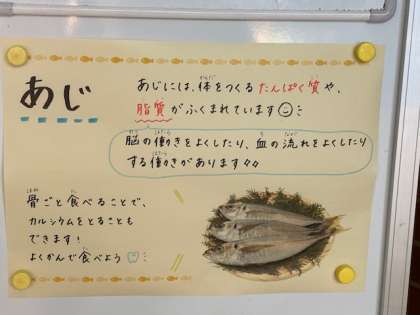 あじ
あじには、体をつくるたんぱく質や、
脂質がふくまれています
脳の働きをよくしたり、血の流れをよくしたり
する働きがあります
骨ごと食べることで、
カルシウムをとることも
できます!
よくかんで食べよう